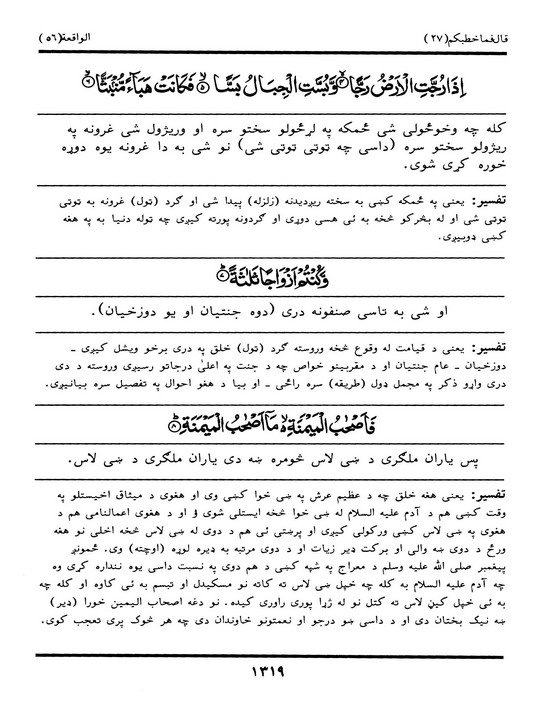 قال فما خطبكم (٢٧) الواقعة (٥٦)
اِذَا رُجَّتِ الْاَرْضُ رَجًّا ﴿٤﴾ وَّبُسَّتِ الْجِبَالُ بَسًّا ﴿٥﴾ فَكَانَتْ هَبَآءً مُّنْۢبَثًّا ﴿٦﴾
کله چه وخوځولی شی ځمکه په لړځولو سختو سره او وریژول شی غرونه په
ریژولو سختو سره (داسی چه توټی توټی شی) نو شی به دا غرونه یوه دوړه
خوره کړی شوی.
تفسیر: یعنی په ځمکه کښی به سخته ریږدیدنه (زلزله) پیدا شی او ګرد (ټول) غرونه به توټی
توټی شی او له بڅرکو څخه به ئی هسی دوړی او ګردونه پورته کیږی چه ټوله دنیا به په هغه
کښی ډوبیږی.
وَّكُنْتُمْ اَزْوَاجًا ثَلٰثَةً ﴿٧﴾
او شی به تاسی صنفونه دری (دوه جنتیان او یو دوزخیان).
تفسیر: یعنی د قیامت له وقوع څخه وروسته ګرد (ټول) خلق په دری برخو ویشل کیږی ـ
دوزخیان ـ عام جنتیان او د مقربینو خواص چه د جنت په اعلیٰ درجاتو رسیږی وروسته د دی
دری واړو ذکر په مجمل ډول (طریقه) سره راځی ـ او بیا د هغو احوال په تفصیل سره بیانیږی.
فَاَصْحٰبُ الْمَيْمَنَةِ ۙ مَاۤ اَصْحٰبُ الْمَيْمَنَةِ ﴿٨﴾
پس یاران ملګری د ښی لاس څومره ښه دی یاران ملګری د ښی لاس.
تفسیر: یعنی هغه خلق چه د عظیم عرش په ښی خوا کښی وی او هغوی د میثاق اخیستلو په
وقت کښی هم د آدم علیه السلام له ښی خوا څخه ایستلی شوی ؤ او د هغوی اعمالنامی هم د
هغوی په ښی لاس کښی ورکولی کیږی او پرښتی ئی هم د دوی له ښی لاس څخه اخلی نو هغه
ورځ د دوی ښه والی او برکت ډیر زیات او د دوی مرتبه به ډیره لوړه (اوچته) وی. ځمونږ
پیغمبر صلی الله علیه وسلم د معراج په شپه کښی د هم دوی په نسبت داسی یوه ننداره کړی وه
چه آدم علیه السلام به کله چه خپل ښی لاس ته کاته نو مسکیدل او تبسم به ئی کاوه او کله چه
به ئی خپل کین لاس ته کتل نو له ژړا پوری راوری کیده. نو دغه اصحاب الیمین خورا (ډیر)
ښه نیک بختان دی او د داسی ښو درجو او نعمتونو خاوندان دی چه هر څوک پری تعجب کوی.
١٣١٩